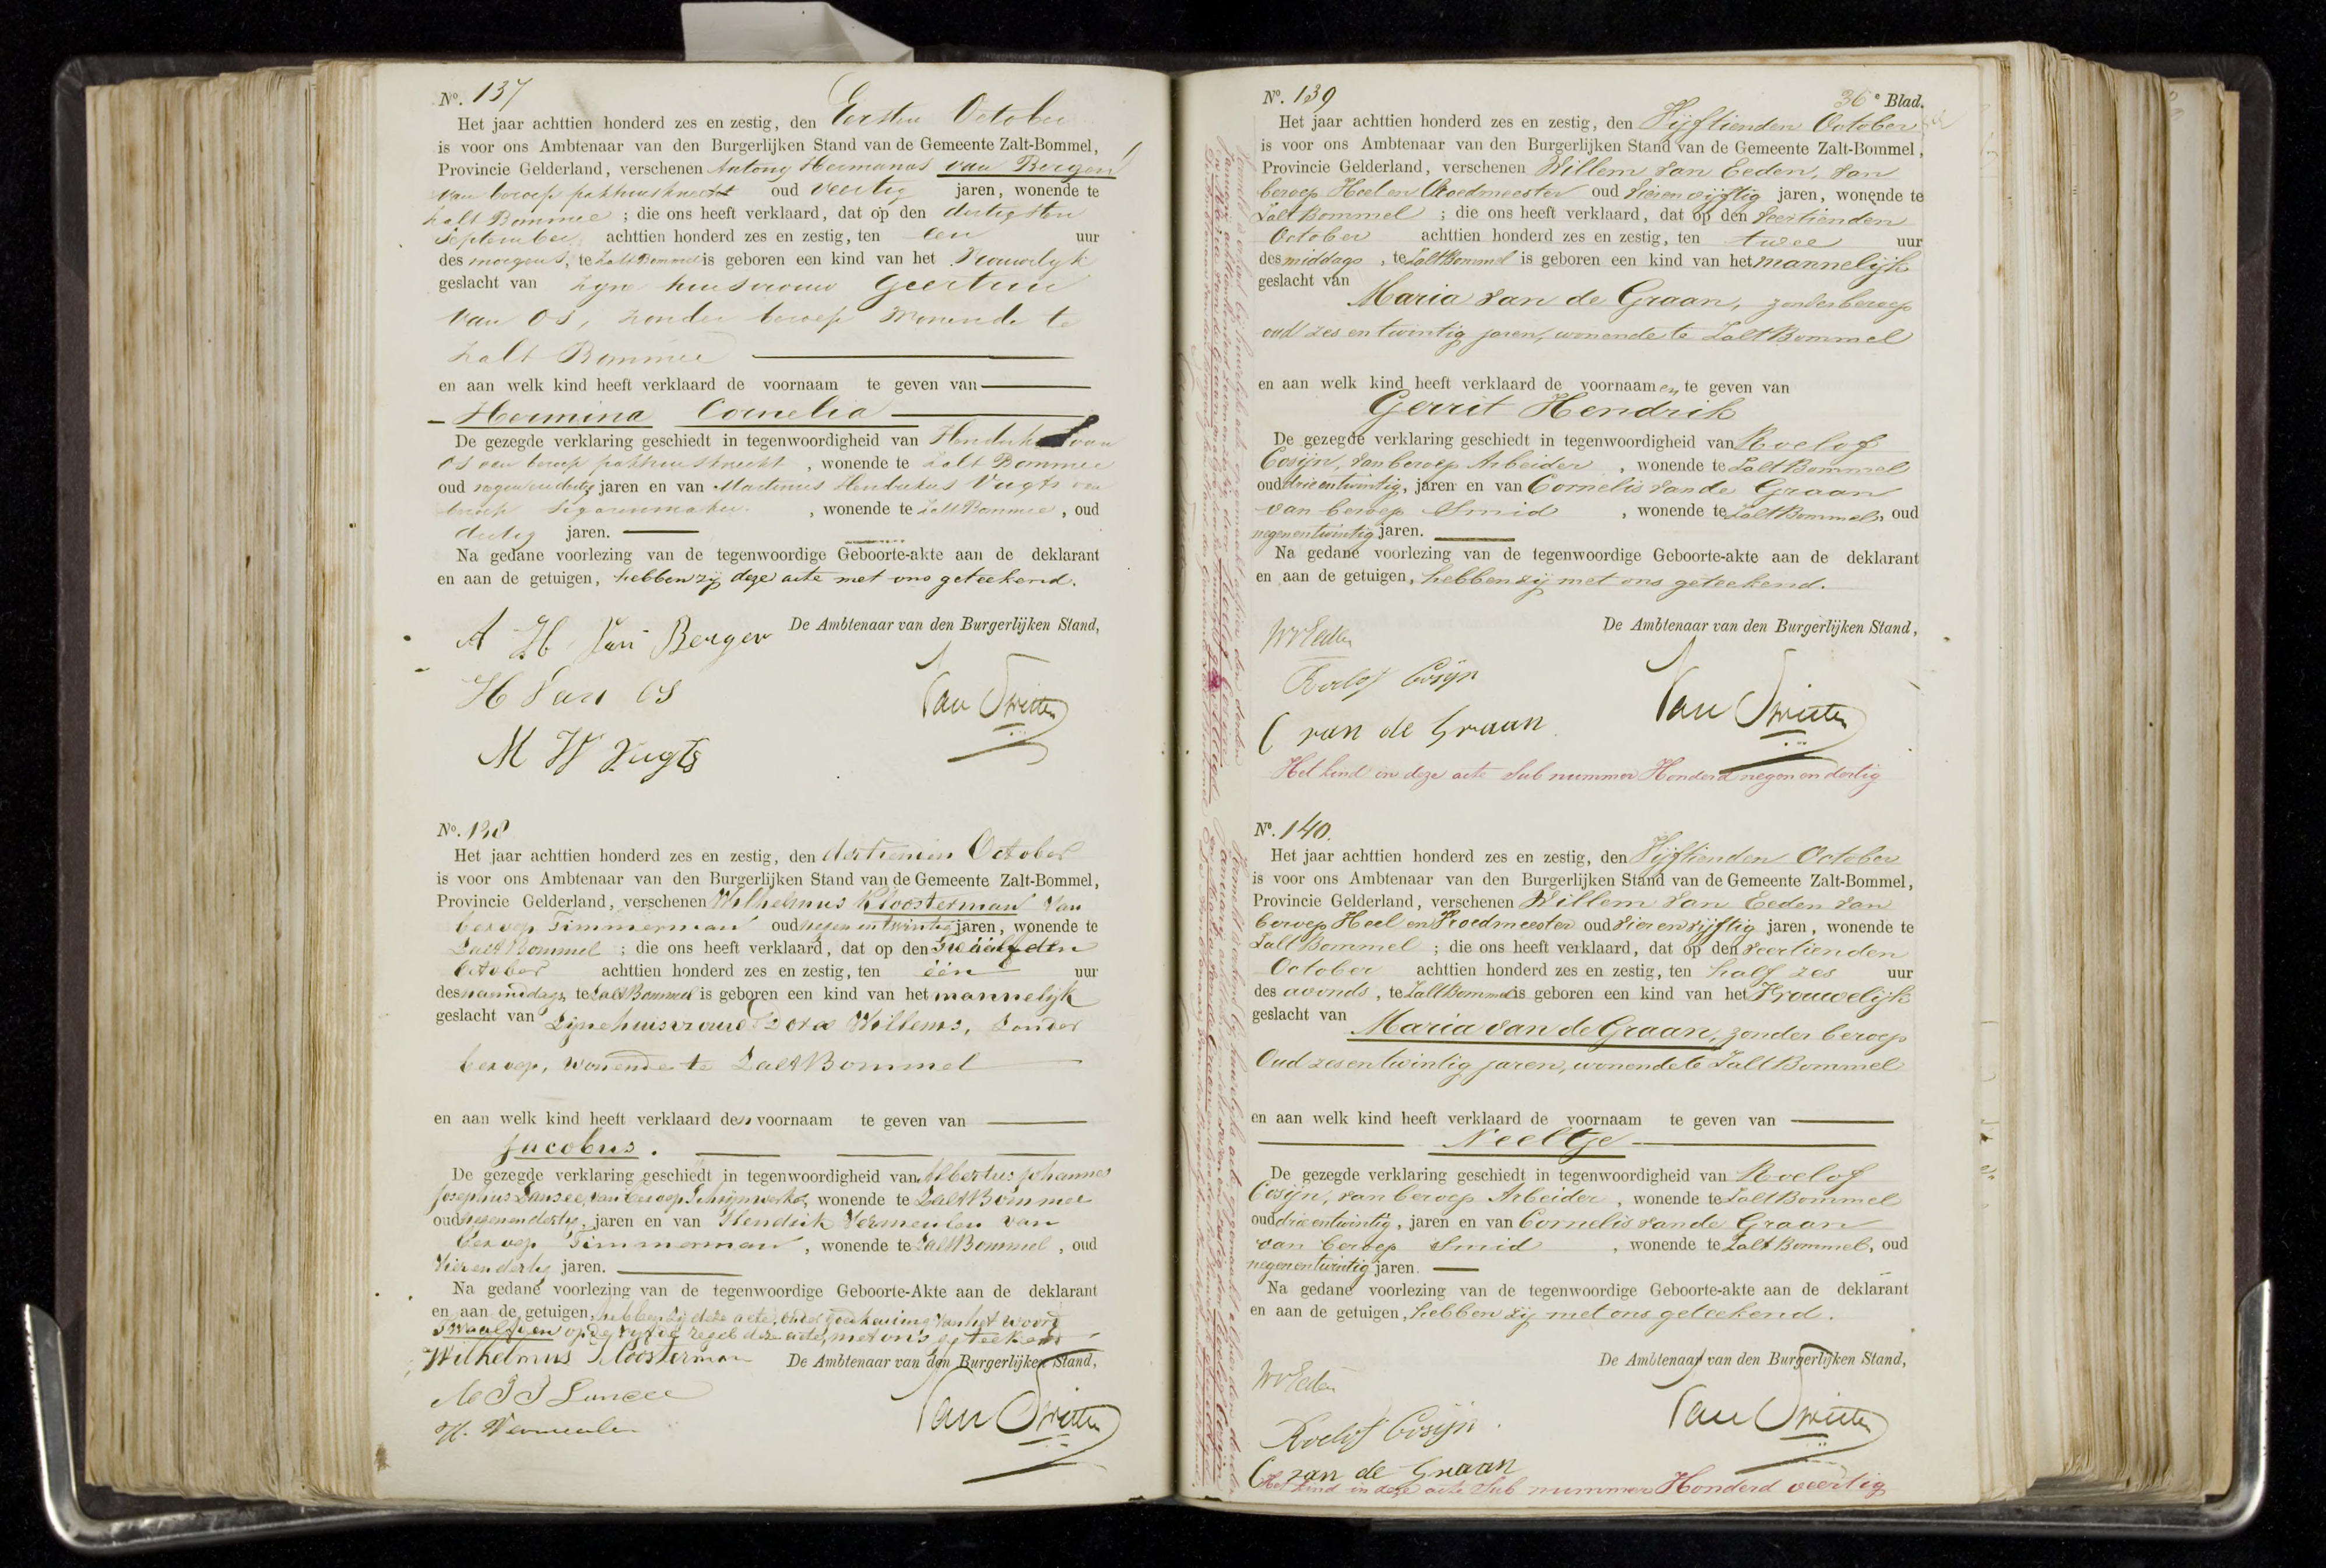 No. 137
Het jaar achttien honderd zes en zestig, den Eersten October
is voor ons Ambtenaar van den Burgerlijken Stand van de Gemeente Zalt-Bommel,
Provincie Gelderland, verschenen Antony Hermanus van Bergen
van beroep pakhuisknecht oud veertig jaren, wonende te
Zalt Bommel ; die ons heeft verklaard, dat op den dertigsten
September achttien honderd zes en zestig, ten een uur
des morgens, te Zalt Bommel is geboren een kind van het Vrouwelyk
geslacht van zyne huisvrouw Geertrui
van Os, zonder beroep wonende te
Zalt Bommel
en aan welk kind heeft verklaard de voornaam te geven van
Hermina Cornelia
De gezegde verklaring geschiedt in tegenwoordigheid van Hendrik van
Os van beroep pakhuisknecht , wonende te Zalt Bommel
oud negenendertig jaren en van Martinus Hendrikus Vugts van
beroep Sigarenmaker , wonende te Zalt Bommel , oud
dertig jaren.
Na gedane voorlezing van de tegenwoordige Geboorte-akte aan de deklarant
en aan de getuigen, hebben zij deze acte met ons geteekend.
De Ambtenaar van den Burgerlijken Stand,
A H Van Bergen
H Van Os
M H Vugts
No. 138
Het jaar achttien honderd zes en zestig, den dertienden October
is voor ons Ambtenaar van den Burgerlijken Stand van de Gemeente Zalt-Bommel,
Provincie Gelderland, verschenen Wilhelmus Kloosterman van
beroep Timmerman oud negen en twintig jaren, wonende te
Zalt Bommel ; die ons heeft verklaard, dat op den Twaalfden
October achttien honderd zes en zestig, ten één uur
des namiddags, te Zalt Bommel is geboren een kind van het mannelijk
geslacht van Zijne huisvrouw Dora Willems, Zonder
beroep, wonende te Zalt Bommel
en aan welk kind heeft verklaard den voornaam te geven van
Jacobus.
De gezegde verklaring geschiedt in tegenwoordigheid van Albertus Johannes
Josephus Lansee, van beroep Schrijnwerker, wonende te Zalt Bommel
oud negenendertig, jaren en van Hendrik Vermeulen van
beroep Timmerman , wonende te Zalt Bommel , oud
Vierendertig jaren.
Na gedane voorlezing van de tegenwoordige Geboorte-Akte aan de deklarant
en aan de getuigen, hebben zij deze acte, onder goedkeuring van het woord
Twaalfden op de vyfde regel deze acte, met ons geteekend
De Ambtenaar van den Burgerlijken Stand,
Wilhelmus Kloosterman
H. Vermeulen
No. 139 36e Blad.
Het jaar achttien honderd zes en zestig, den Vijftienden October
is voor ons Ambtenaar van den Burgerlijken Stand van de Gemeente Zalt-Bommel,
Provincie Gelderland, verschenen Willem van Eeden, van
beroep Heel en Vroedmeester oud vierenvijftig jaren, wonende te
Zalt Bommel ; die ons heeft verklaard, dat op den veertienden
October achttien honderd zes en zestig, ten twee uur
des middags , te Zalt Bommel is geboren een kind van het mannelijk
geslacht van
Maria van de Graan, zonder beroep
oud zes en twintig jaren, wonende te Zalt Bommel
en aan welk kind heeft verklaard de voornaamen te geven van
Gerrit Hendrik
De gezegde verklaring geschiedt in tegenwoordigheid van Roelof
Cosijn, van beroep Arbeider , wonende te Zalt Bommel
oud drieentwintig, jaren en van Cornelis van de Graan
van beroep Smid , wonende te Zalt Bommel, oud
negenentwintig jaren.
Na gedane voorlezing van de tegenwoordige Geboorte-akte aan de deklarant
en aan de getuigen, hebben zij met ons geteekend.
De Ambtenaar van den Burgerlijken Stand,
WvEeden
Roelof Cosijn
C van de Graan
Het kind in deze acte Sub nummer Honderd negen en dertig
No. 140.
Het jaar achttien honderd zes en zestig, den Vijftienden October
is voor ons Ambtenaar van den Burgerlijken Stand van de Gemeente Zalt-Bommel,
Provincie Gelderland, verschenen Willem van Eeden van
beroep Heel en Vroedmeester oud vierenvijftig jaren, wonende te
Zalt Bommel ; die ons heeft verklaard, dat op den veertienden
October achttien honderd zes en zestig, ten half zes uur
des avonds , te Zalt Bommel is geboren een kind van het Vrouwelijk
geslacht van
Maria van de Graan, zonder beroep
Oud zesentwintig jaren, wonende te Zalt Bommel
en aan welk kind heeft verklaard de voornaam te geven van
Neeltje
De gezegde verklaring geschiedt in tegenwoordigheid van Roelof
Cosijn, van beroep Arbeider , wonende te Zalt Bommel
oud drieentwintig, jaren en van Cornelis van de Graan
van beroep Smid , wonende te Zalt Bommel, oud
negenentwintig jaren.
Na gedane voorlezing van de tegenwoordige Geboorte-akte aan de deklarant
en aan de getuigen, hebben zij met ons geteekend.
De Ambtenaar van den Burgerlijken Stand,
WvEeden
Roelof Cosijn
C van de Graan
Het kind in deze acte Sub nummer Honderd veertig